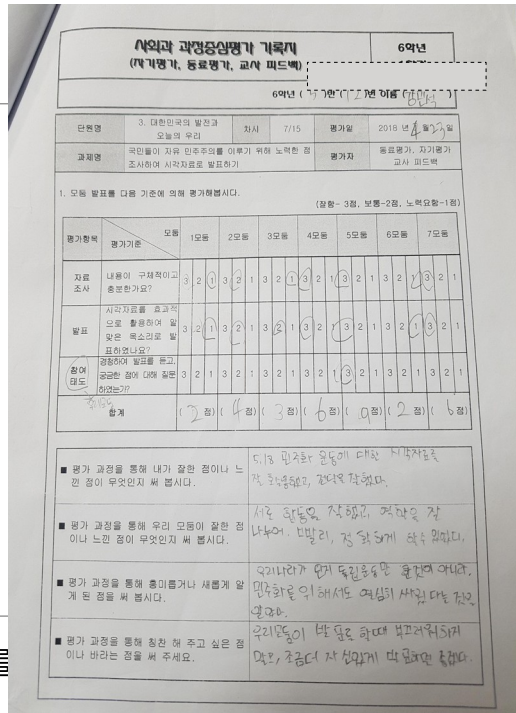 사회과 과정중심평가 기록지
(자기평가, 동료평가, 교사 피드백)
6학년
6학년 ( 5 )반 ( 12 )번 이름 ( )
단원명
3. 대한민국의 발전과
오늘의 우리
차시
7/15
평가일
2018 년 4월 23일
과제명
국민들이 자유 민주주의를 이루기 위해 노력한 점
조사하여 시각자료로 발표하기
평가자
동료평가, 자기평가
교사 피드백
1. 모둠 발표를 다음 기준에 의해 평가해봅시다.
(잘함- 3점, 보통-2점, 노력요함-1점)
평가항목
모둠
평가기준
1모둠 2모둠 3모둠 4모둠 5모둠 6모둠 7모둠
자료
조사
내용이 구체적이고
충분한가요?
3 2 1 3 2 1 3 2 1 3 2 1 3 2 1 3 2 1 3 2 1
발표
시각자료를 효과적
으로 활용하여 알
맞은 목소리로 발
표하였나요?
3 2 1 3 2 1 3 2 1 3 2 1 3 2 1 3 2 1 3 2 1
참여
태도
경청하여 발표를 듣고,
궁금한 점에 대해 질문
하였는가?
3 2 1 3 2 1 3 2 1 3 2 1 3 2 1 3 2 1 3 2 1
합계
( 2 점) ( 4 점) ( 3 점) ( 6 점) ( 9 점) ( 2 점) ( 6 점)
■ 평가 과정을 통해 내가 잘한 점이나 느
낀 점이 무엇인지 써 봅시다.
5.18 민주화 운동에 대한 시각자료를
잘 활용했고, 잘했다.
■ 평가 과정을 통해 우리 모둠이 잘한 점
이나 느낀 점이 무엇인지 써 봅시다.
서로 활동을 잘했고, 역할을 잘
나누어. 빨리, 정확하게 할수 있었다.
■ 평가 과정을 통해 흥미롭거나 새롭게 알
게 된 점을 써 봅시다.
우리나라가 독립운동만 아니라.
민주화를 위해서도 열심히 싸웠다는 것을
알았다.
■ 평가 과정을 통해 칭찬 해 주고 싶은 점
이나 바라는 점을 써 주세요.
우리모둠이 발표를 할때 부끄러워하지
말고, 조금더 자신있게 발표하면 좋겠다.